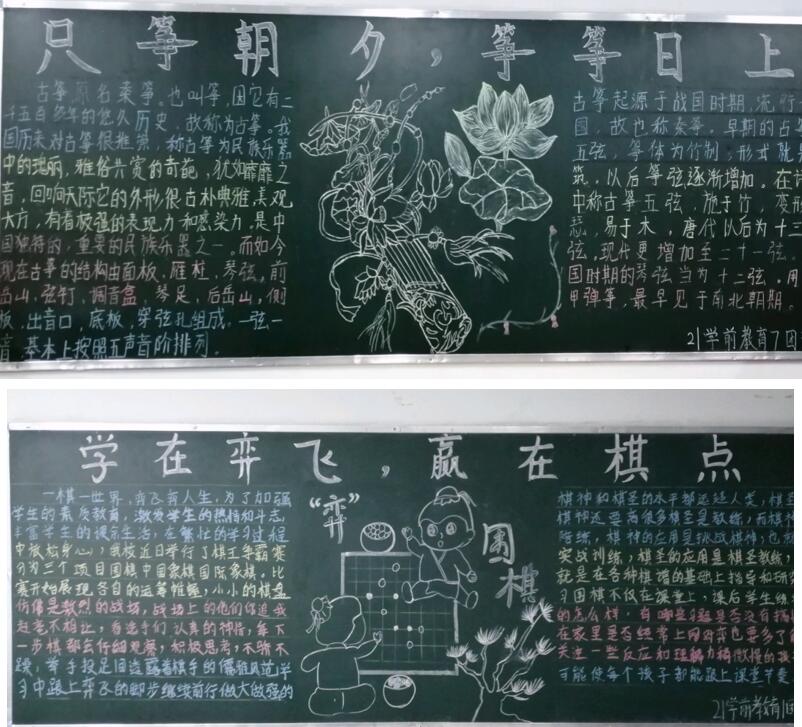 只筝朝夕，筝筝日上
古筝原名秦筝。也叫筝，因它有二
千五百多年的悠久历史，故称为古筝。我
国历来对古筝很推崇，称古筝为民族乐器
中的瑰丽，雅俗共赏的奇葩，犹如霏霏之
音，回响天际它的外形很古朴典雅，美观
大方，有着极强的表现力和感染力，是中
国独特的，重要的民族乐器之一。而如今
现在古筝的结构由面板，雁柱，琴弦，前
岳山，弦钉，调音盒，琴足，后岳山，侧
板，出音口，底板，穿弦孔组成。一弦一
音，基本上按照五声音阶排列。
古筝起源于战国时期，流行
国，故也称秦筝。早期的古
五弦，筝体为竹制，形式就
筑，以后筝弦逐渐增加。在
中称筝五弦，施于竹，变形
瑟，易于木，唐代以后为十三
弦。现代更增加至二十一弦。
国时期的琴弦当为十二弦。用
甲弹筝，最早见于南北朝期。
21学前教育7团
学在弈飞，赢在棋点
一棋一世界，弈飞弈人生，为了加强
学生的素质教育，激发学生的热情和斗志，
丰富学生的课余生活，在繁忙的学习过程
中放松身心，我校近日举行了棋王争霸赛
分为三个项目围棋中国象棋国际象棋。比
赛开始展现各自的运筹帷幄，小小的棋盘
仿佛是激烈的战场，战场上的他们你追我
赶毫不相让，看选手们认真的神情，每下
一步棋都会仔细观察，积极思考，不骄不
躁，举手投足间透露着棋手的儒雅风范，学
习中跟上弈飞的脚步继续前行做大做强的
“弈”
围棋
棋神和棋圣的水平都远超人类，棋
棋神还要高很多棋圣是教练，而棋神
陪练，棋神的应用是挑战棋神；也
实战训练，棋圣的应用是棋圣教练，
就是在各种棋谱的基础上指导和研
习围棋不仅在课堂上，课后学生练
的怎么样，有哪些习题是否没有搞
在家里是否经常上网对弈也要多了
关注一些反应和理解力稍微慢的孩
可能使每个孩子都能跟上课堂节奏
21学前教育1团